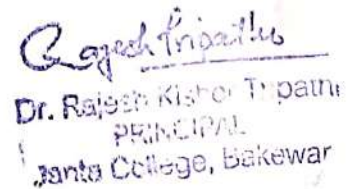 Rajesh Tripathi
Dr. Rajesh Kishor Tripathi
PRINCIPAL
Janta College, Bakewar